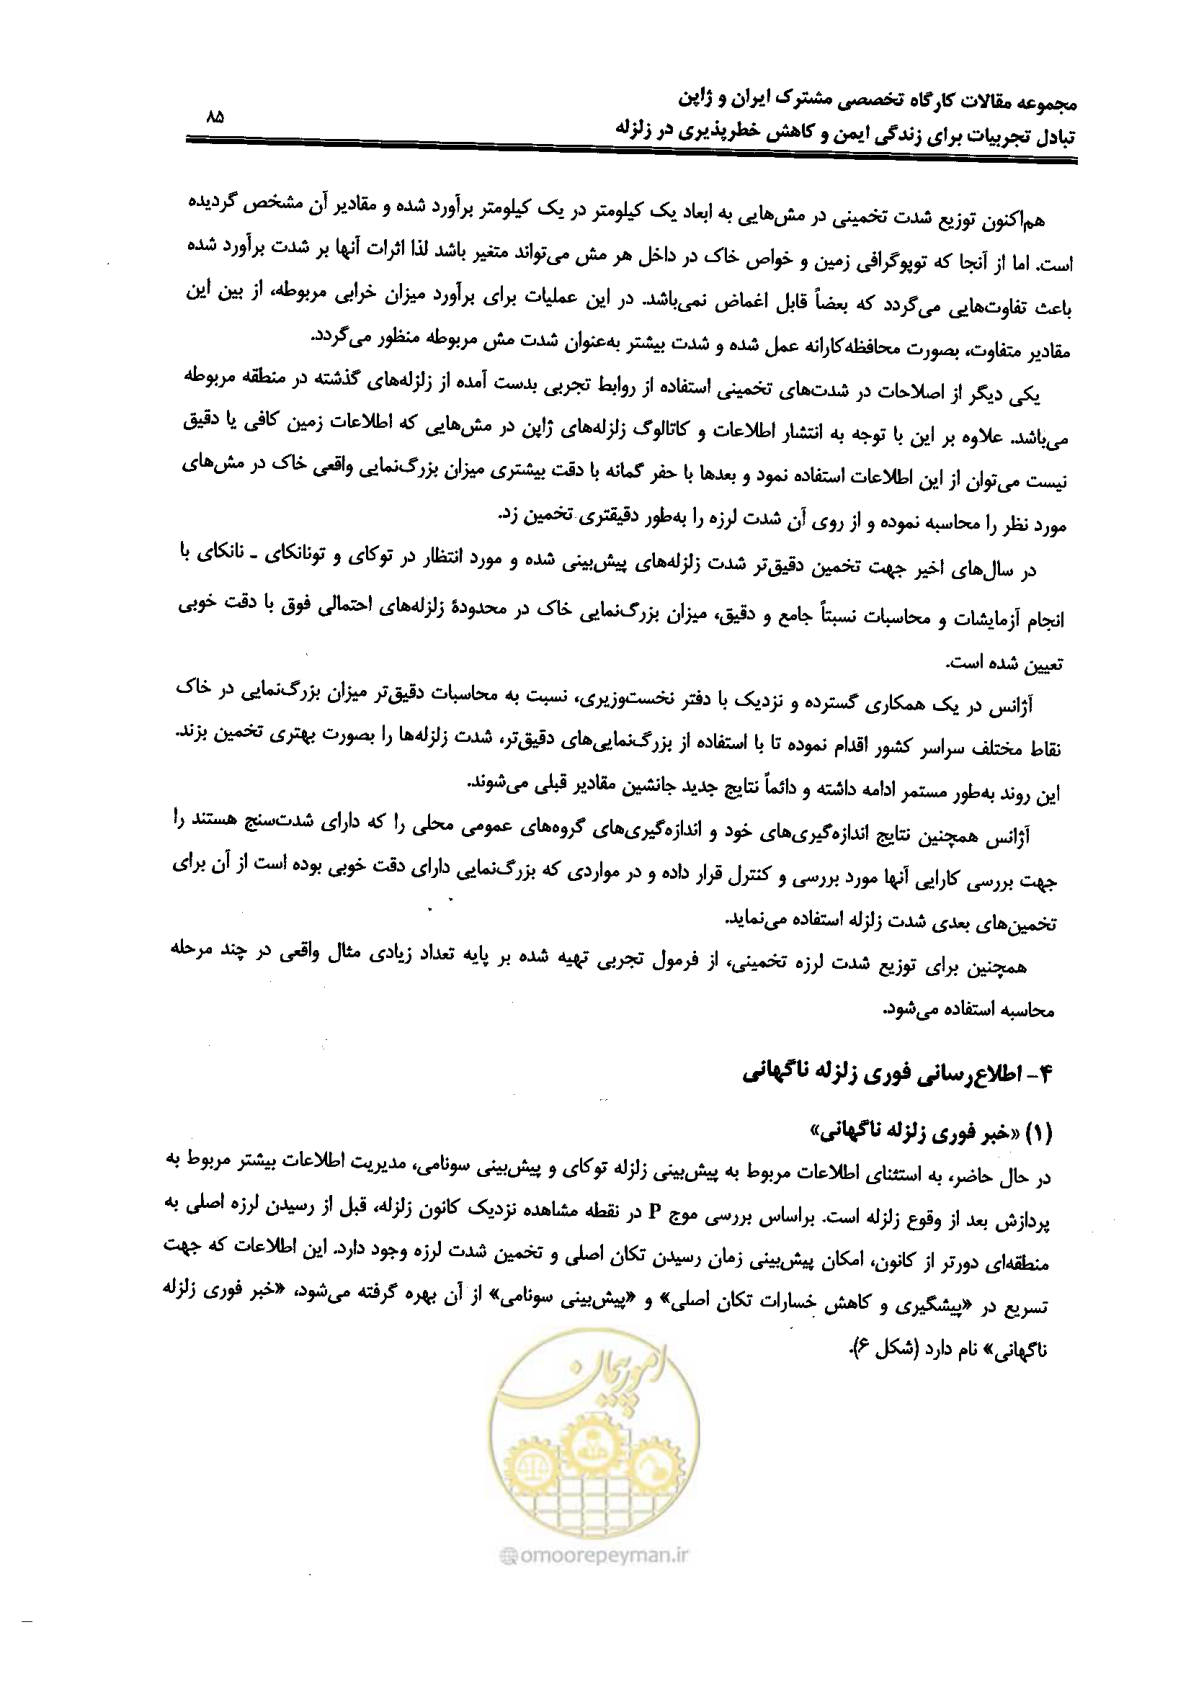 مجموعه مقالات کارگاه تخصصی مشترک ایران و ژاپن
تبادل تجربیات برای زندگی ایمن و کاهش خطرپذیری در زلزله
۸۵
هم‌اکنون توزیع شدت تخمینی در مش‌هایی به ابعاد یک کیلومتر در یک کیلومتر برآورد شده و مقادیر آن مشخص گردیده
است. اما از آنجا که توپوگرافی زمین و خواص خاک در داخل هر مش می‌تواند متغیر باشد لذا اثرات آنها بر شدت برآورد شده
باعث تفاوت‌هایی می‌گردد که بعضاً قابل اغماض نمی‌باشد. در این عملیات برای برآورد میزان خرابی مربوطه، از بین این
مقادیر متفاوت، بصورت محافظه‌کارانه عمل شده و شدت بیشتر به‌عنوان شدت مش مربوطه منظور می‌گردد.
یکی دیگر از اصلاحات در شدت‌های تخمینی استفاده از روابط تجربی بدست آمده از زلزله‌های گذشته در منطقه مربوطه
می‌باشد. علاوه بر این با توجه به انتشار اطلاعات و کاتالوگ زلزله‌های ژاپن در مش‌هایی که اطلاعات زمین کافی یا دقیق
نیست می‌توان از این اطلاعات استفاده نمود و بعدها با حفر گمانه با دقت بیشتری میزان بزرگ‌نمایی واقعی خاک در مش‌های
مورد نظر را محاسبه نموده و از روی آن شدت لرزه را به‌طور دقیقتری تخمین زد.
در سال‌های اخیر جهت تخمین دقیق‌تر شدت زلزله‌های پیش‌بینی شده و مورد انتظار در توکای و تونانکای ـ نانکای با
انجام آزمایشات و محاسبات نسبتاً جامع و دقیق، میزان بزرگ‌نمایی خاک در محدودهٔ زلزله‌های احتمالی فوق با دقت خوبی
تعیین شده است.
آژانس در یک همکاری گسترده و نزدیک با دفتر نخست‌وزیری، نسبت به محاسبات دقیق‌تر میزان بزرگ‌نمایی در خاک
نقاط مختلف سراسر کشور اقدام نموده تا با استفاده از بزرگ‌نمایی‌های دقیق‌تر، شدت زلزله‌ها را بصورت بهتری تخمین بزند.
این روند به‌طور مستمر ادامه داشته و دائماً نتایج جدید جانشین مقادیر قبلی می‌شوند.
آژانس همچنین نتایج اندازه‌گیری‌های خود و اندازه‌گیری‌های گروه‌های عمومی محلی را که دارای شدت‌سنج هستند را
جهت بررسی کارایی آنها مورد بررسی و کنترل قرار داده و در مواردی که بزرگ‌نمایی دارای دقت خوبی بوده است از آن برای
تخمین‌های بعدی شدت زلزله استفاده می‌نماید.
همچنین برای توزیع شدت لرزه تخمینی، از فرمول تجربی تهیه شده بر پایه تعداد زیادی مثال واقعی در چند مرحله
محاسبه استفاده می‌شود.
۴- اطلاع‌رسانی فوری زلزله ناگهانی
(۱) «خبر فوری زلزله ناگهانی»
در حال حاضر، به استثنای اطلاعات مربوط به پیش‌بینی زلزله توکای و پیش‌بینی سونامی، مدیریت اطلاعات بیشتر مربوط به
پردازش بعد از وقوع زلزله است. براساس بررسی موج P در نقطه مشاهده نزدیک کانون زلزله، قبل از رسیدن لرزه اصلی به
منطقه‌ای دورتر از کانون، امکان پیش‌بینی زمان رسیدن تکان اصلی و تخمین شدت لرزه وجود دارد. این اطلاعات که جهت
تسریع در «پیشگیری و کاهش خسارات تکان اصلی» و «پیش‌بینی سونامی» از آن بهره گرفته می‌شود، «خبر فوری زلزله
ناگهانی» نام دارد (شکل ۶).
امور پیمان
@omoorepeyman.ir